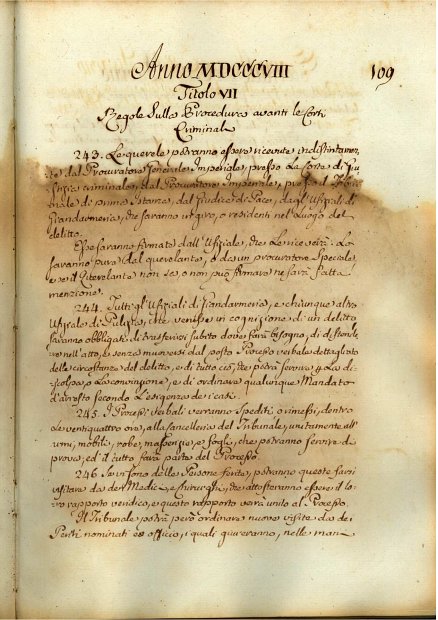 Anno MDCCCVIII
109
Titolo VII
Regole sulla Procedura avanti le Corti
Criminali
243. Le querele potranno essere ricevute indistintamen,
te dal Procuratore Generale Imperiale, presso la Corte di Giu
stizia criminale, dal Procuratore Imperiale, presso il Tribu
nale di prima Istanza, dal Giudice di Pace, dagli Ufiziali di
Grandarmeria, che saranno in giro, o residenti nel Luogo del
delitto.
Esse saranno firmate dall' Ufiziale, che le riceverà: Lo
saranno pure dal querelante, o da un procuratore Speciale,
e se il querelante non sa, o non può firmare ne sarà fatta
menzione.
244. Tutti gli Ufiziali di Giandarmeria, e chiunque altro
Ufiziale di Pulizia, che venisse in cognizione di un delitto
saranno obbligati di trasferirsi subito dove farà bisogno, di distende
re nell'atto, e senza muoversi dal posto Processo verbale dettagliato
delle circostanze del delitto, e di tutto ciò, che potrà servire a La di=
scolpa, o La convinzione, e di ordinare qualunque Mandato
d'arresto secondo L'esigenza de' casi.
245. I Processi verbali verranno spediti, o rimessi, dentro
Le ventiquattro ore, alla Cancelleria del Tribunale, unitamente all'
armi, mobili, robe, masserizie, e fogli, che potranno servire di
prova, ed il tutto farà parte del Processo.
246 Se vi sono delle Persone ferite, potranno queste farsi
visitare da dei Medici, e chirurghi, che attesteranno essere il lo,
ro rapporto veridico, e questo rapporto verrà unito al Processo.
Il Tribunale potrà però ordinare nuove visite da dei
Periti nominati ex officio, i quali giureranno, nelle man